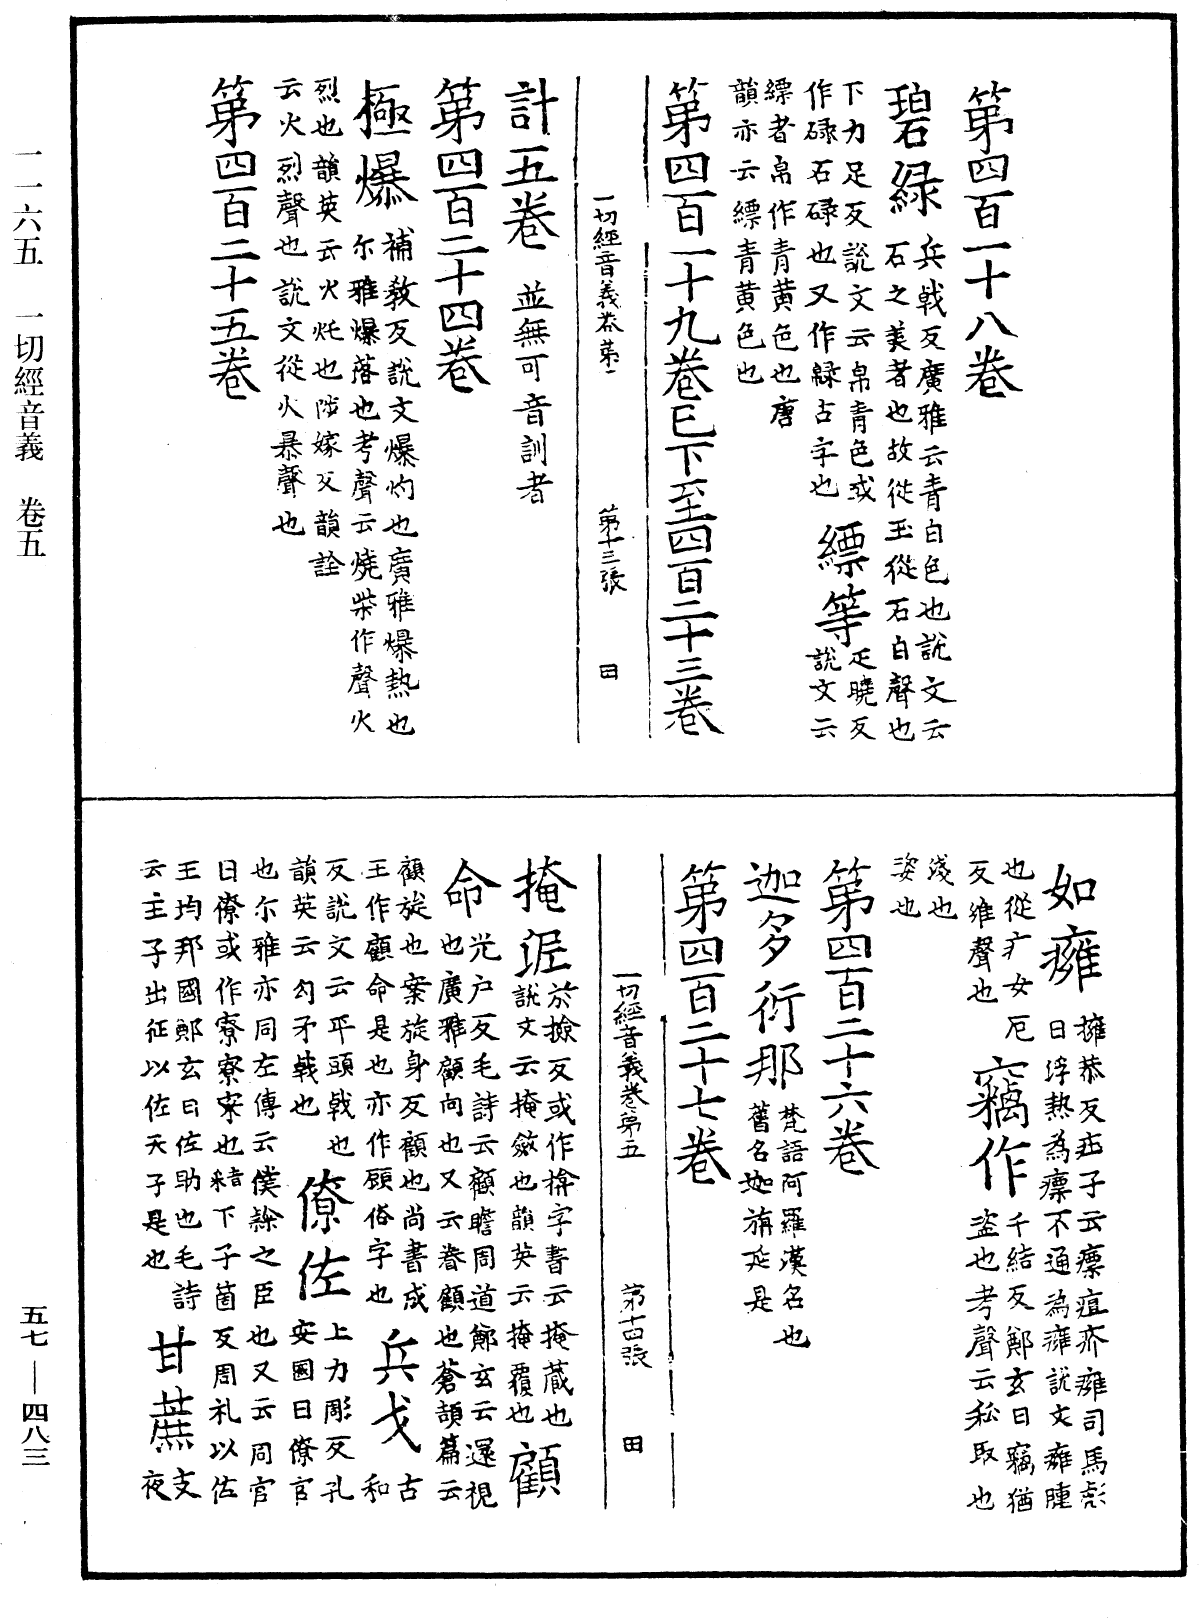 一一六五　一切經音義　卷五
五七—四八三
第四百一十八卷
碧緑　兵戟反廣雅云青白色也說文云
石之美者也故從玉從石白聲也
下力足反說文云帛青色或
作碌石碌也又作緑古字也　縹等　疋曉反
說文云
縹者帛作青黄色也唐
韻亦云縹青黄色也
第四百一十九卷已下至四百二十三卷
一切經音義卷第一　第十三張　田
計五卷　並無可音訓者
第四百二十四卷
極爆　補教反說文爆灼也廣雅爆熱也
尓雅爆落也考聲云燒柴作聲火
烈也韻英云火灹也陟嫁反韻詮
云火烈聲也說文從火暴聲也
第四百二十五卷
如癰　擁恭反莊子云癳疽疥癰司馬彪
曰浮熱為癳不通為癰說文癰腫
也從疒女厄
反雍聲也　竊作　千結反鄭玄曰竊猶
盜也考聲云私取也
淺也
姿也
第四百二十六卷
迦多衍那　梵語阿羅漢名也
舊名迦旃延是
第四百二十七卷
一切經音義卷第五　第十四張　田
掩泥　於撿反或作揜字書云掩蔵也
說文云掩斂也韻英云掩覆也　顧
命　光户反毛詩云顧瞻周道鄭玄云還視
也廣雅顧向也又云眷顧也蒼頡篇云
顧旋也案旋身反顧也尚書成
王作顧命是也亦作頋俗字也　兵戈　古
和
反說文云平頭戟也
韻英云勾矛戟也　僚佐　上力彫反孔
安國曰僚官
也尓雅亦同左傳云僕隸之臣也又云同官
曰僚或作寮寮寀也精下子箇反周礼以佐
王均邦國鄭玄曰佐助也毛詩
云主子出征以佐天子是也　甘蔗　支
夜